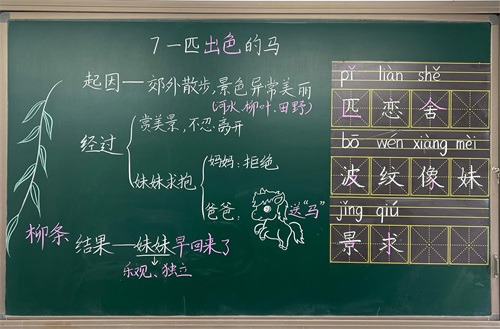 7 一匹出色的马
起因—郊外散步,景色异常美丽
(河水、柳叶、田野)
经过
赏美景,不忍离开
妹妹求抱
妈妈:拒绝
爸爸:送“马”
柳条
结果—妹妹早回来了
乐观、独立
pǐ liàn shě
匹恋舍
bō wén xiàng mèi
波纹像妹
jǐng qiú
景求